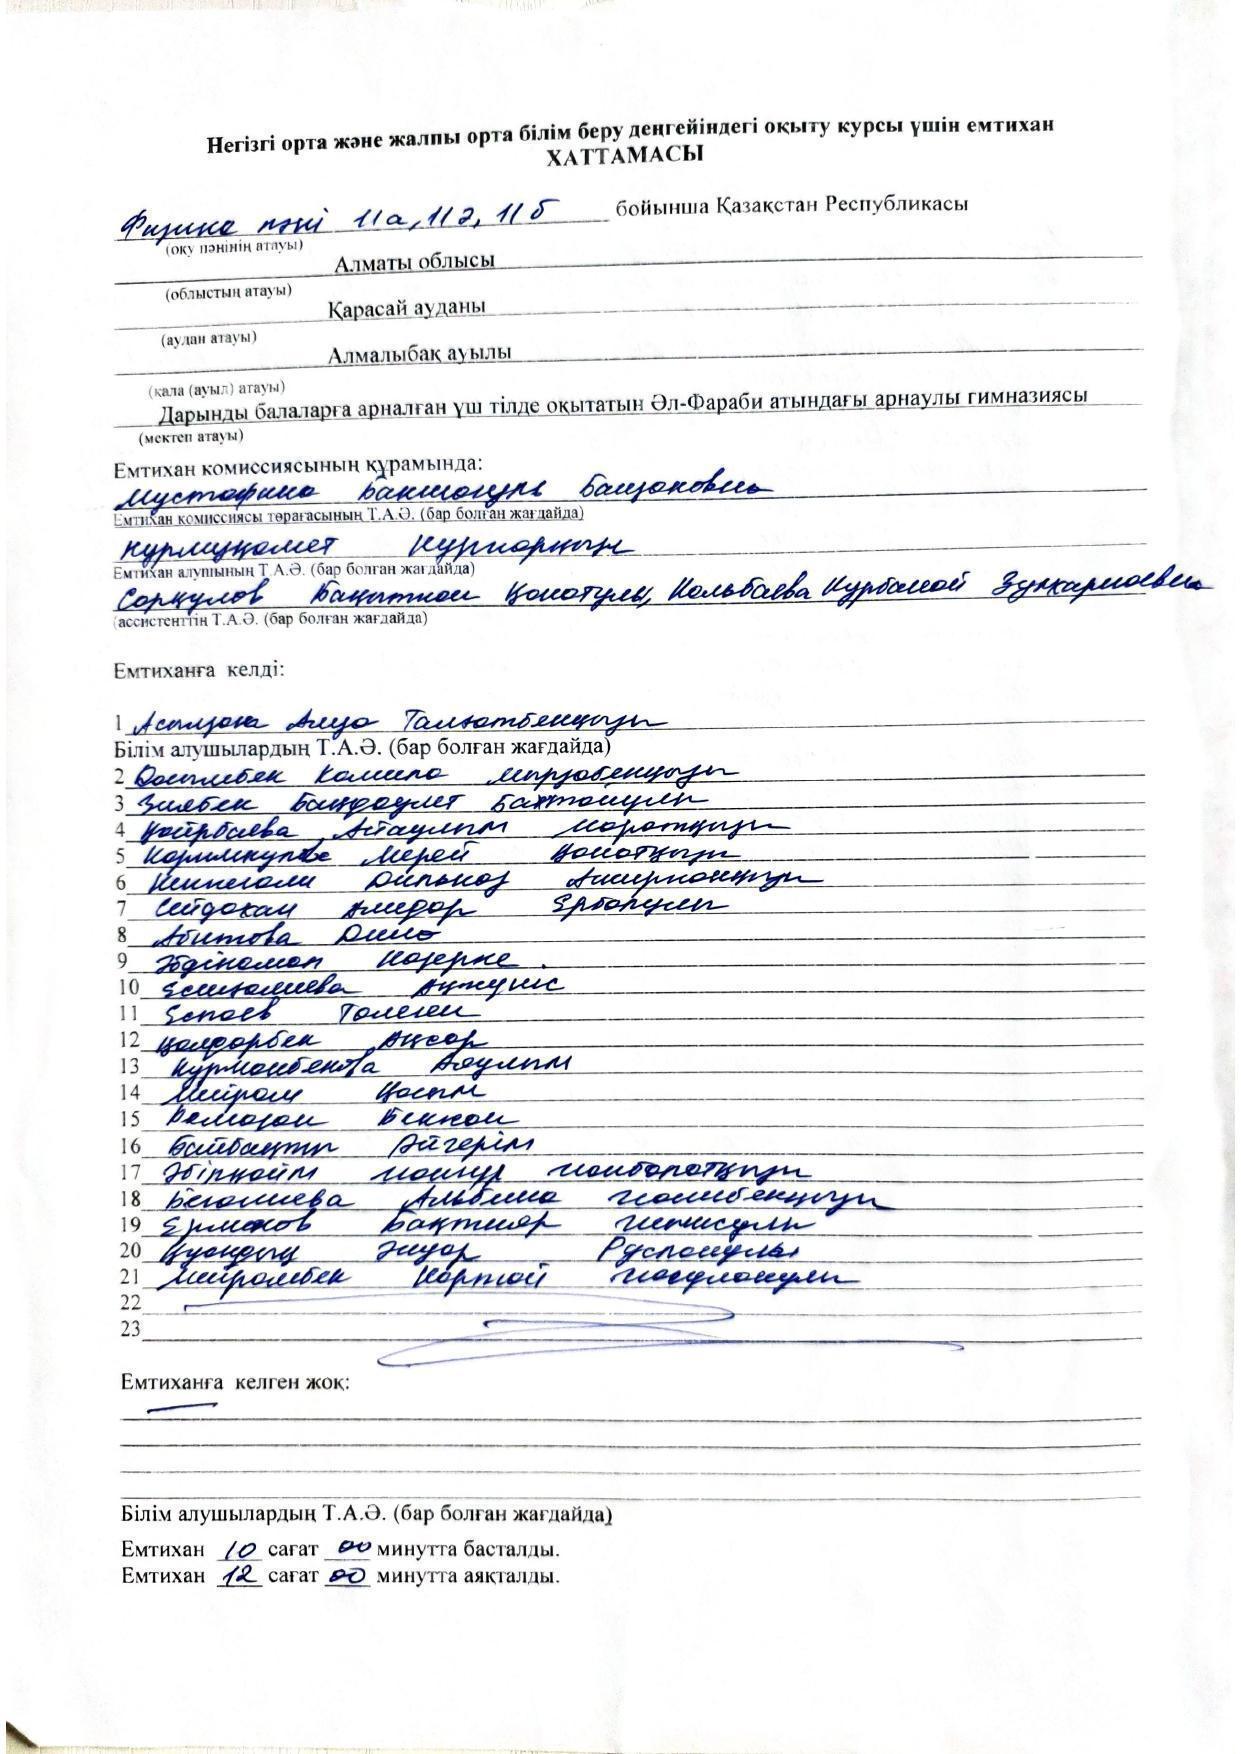 Негізгі орта және жалпы орта білім беру деңгейіндегі оқыту курсы үшін емтихан
ХАТТАМАСЫ
Физика пәні 11а, 11ә, 11б бойынша Қазақстан Республикасы
(оқу пәнінің атауы)
Алматы облысы
(облыстың атауы)
Қарасай ауданы
(аудан атауы)
Алмалыбақ ауылы
(қала (ауыл) атауы)
Дарынды балаларға арналған үш тілде оқытатын Әл-Фараби атындағы арнаулы гимназиясы
(мектеп атауы)
Емтихан комиссиясының құрамында:
Мустафина
Емтихан комиссиясы төрағасының Т.А.Ә. (бар болған жағдайда)
Нұрмұқамет
Емтихан алушының Т.А.Ә. (бар болған жағдайда)
Сорқулов Бақытжан Қанатұлы, Кольбаева Курбанай
(ассистенттің Т.А.Ә. (бар болған жағдайда)
Емтиханға келді:
1
Білім алушылардың Т.А.Ә. (бар болған жағдайда)
2 Камила Мырзабекқызы
3 Зиябек Бақдаулет
4 Қайрбаева Айаулым Маратқызы
5 Мерей Қанатқызы
6 Дильназ
7 Сейдахан Алидар
8 Абитова Дина
9 Назерке
10 Ақжүніс
11 Еспаев Төлеген
12 Қалдарбек Ақсар
13 Құрманбекова Аяулым
14 Мейрам Қасым
15 Рамазан Бекжан
16 Байбақты Әйгерім
17 Әбірқайм
18 Бегалиева Альбина
19 Ермеков Бақтияр
20 Қуандық Әнуар Русланұлы
21 Мейрамбек Нартай
22
23
Емтиханға келген жоқ:
Білім алушылардың Т.А.Ә. (бар болған жағдайда)
Емтихан 10 сағат 00 минутта басталды.
Емтихан 12 сағат 00 минутта аяқталды.